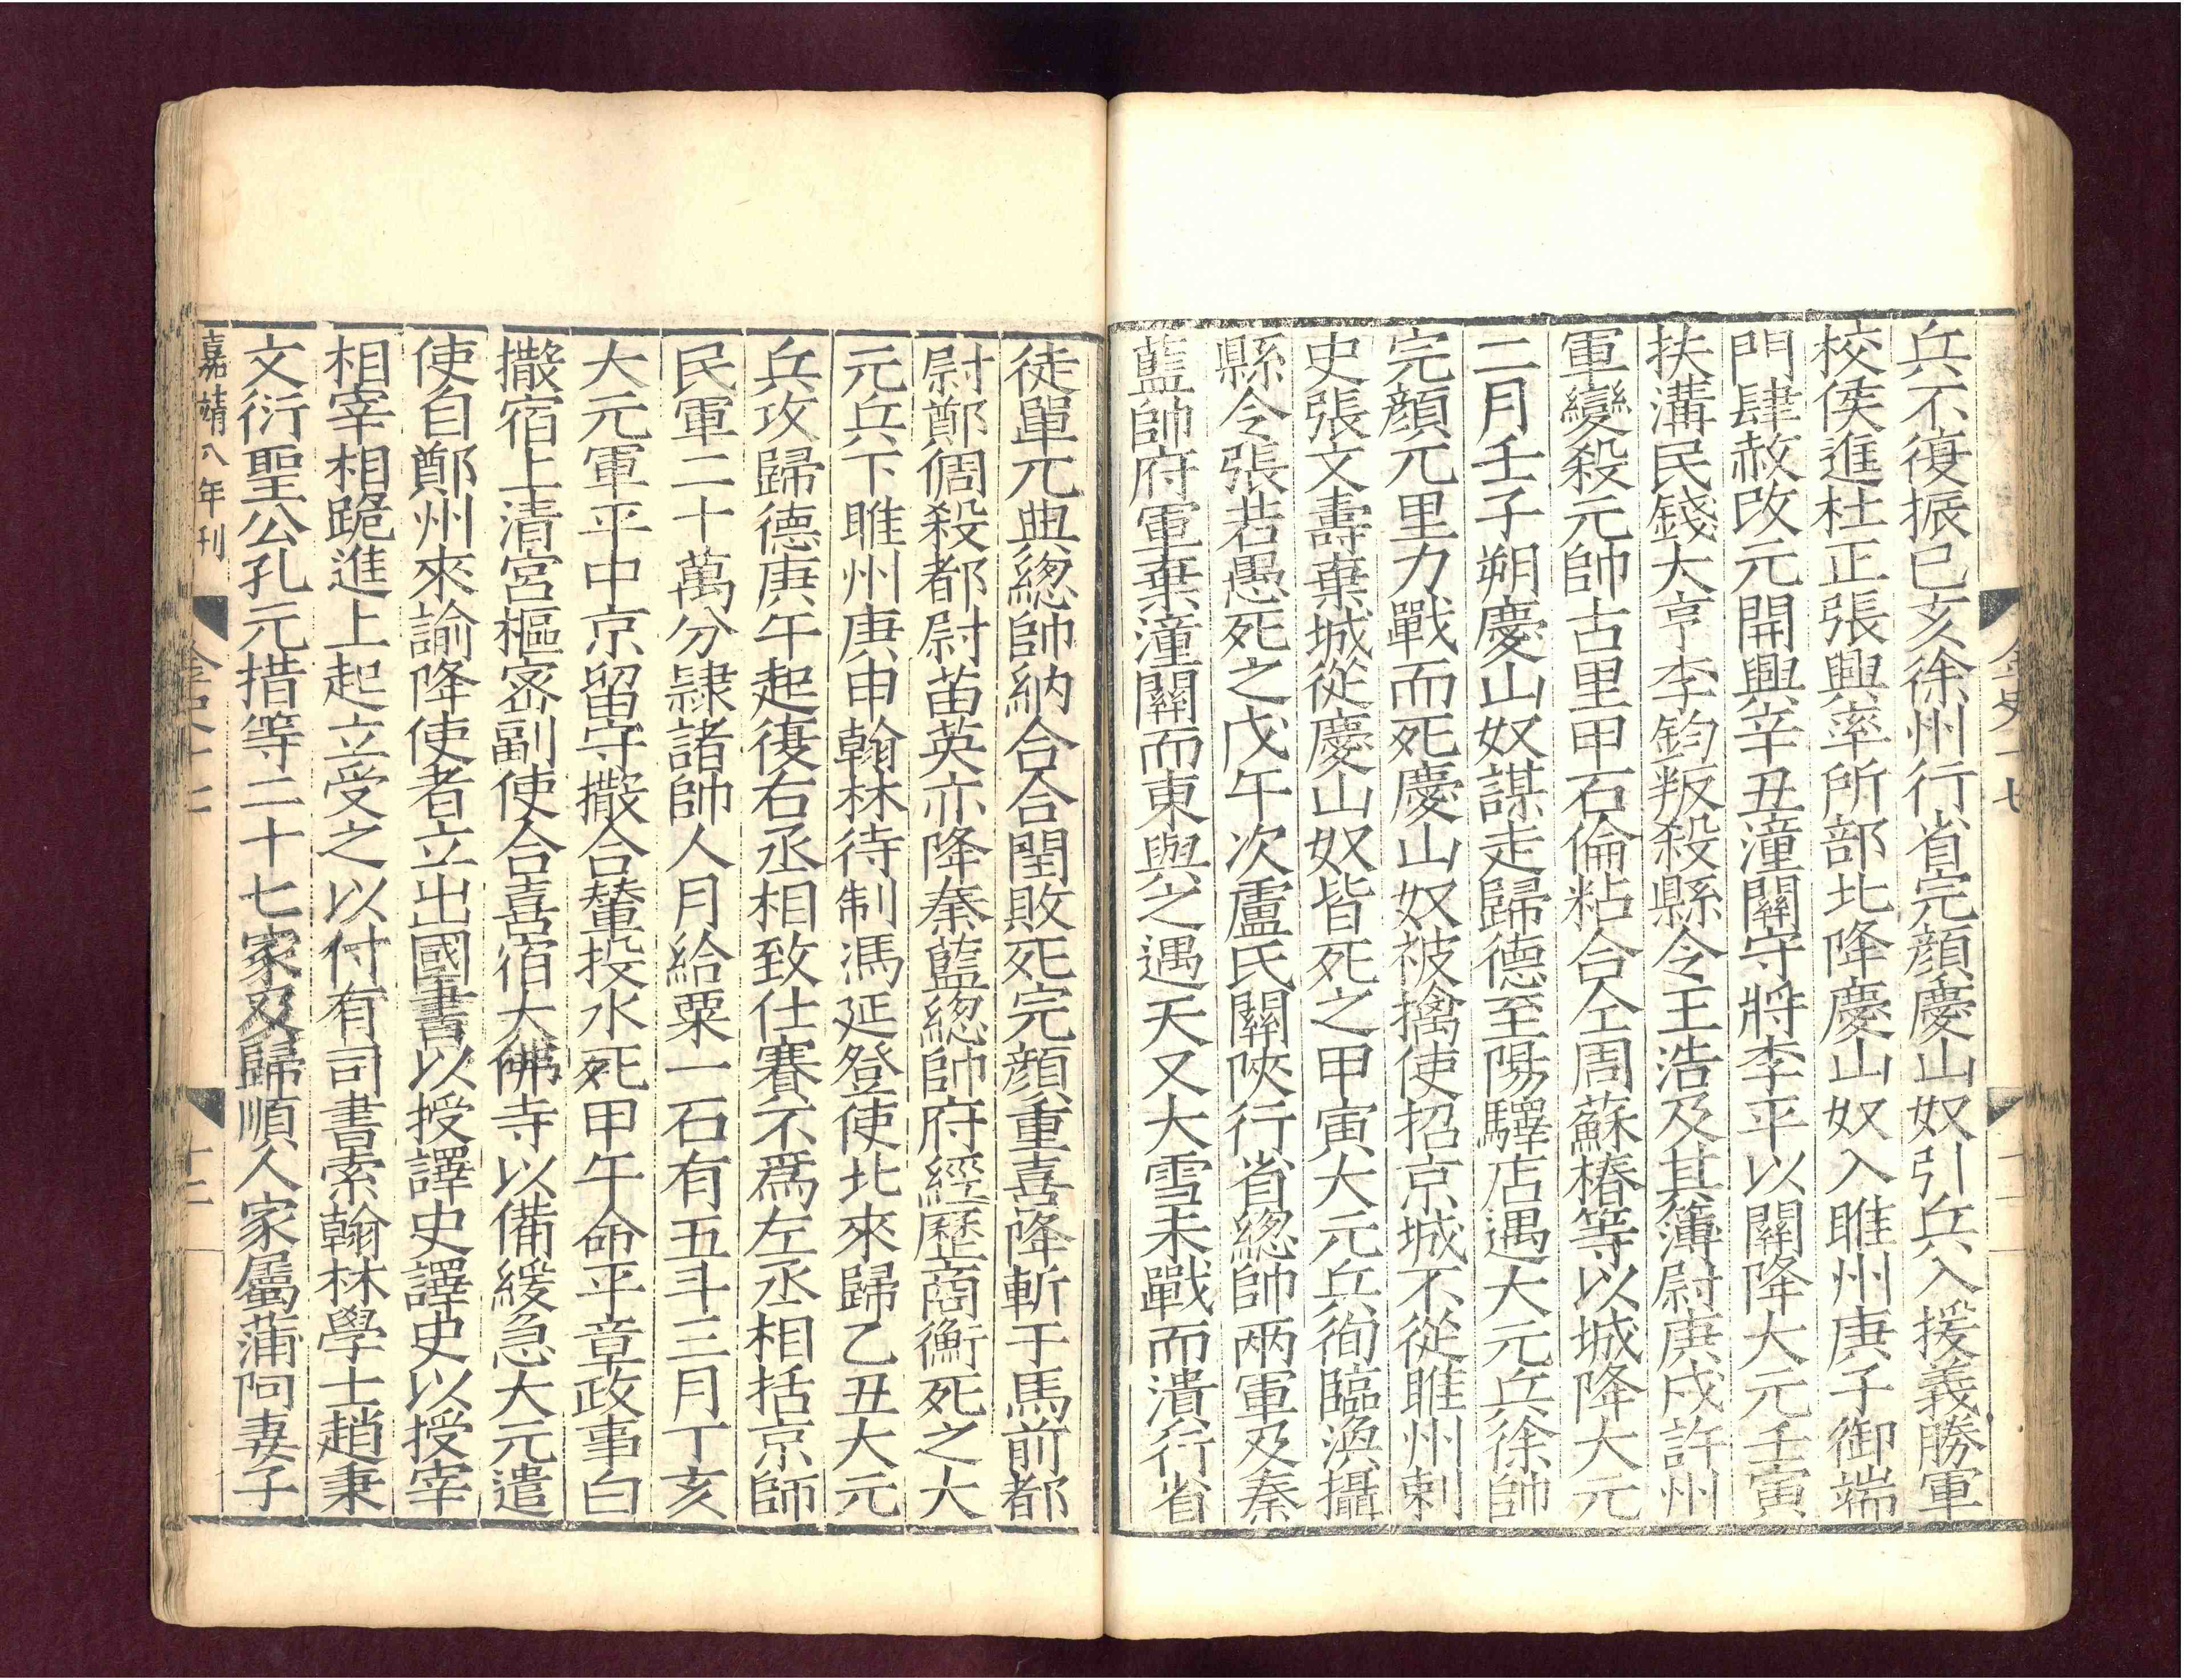 兵不復振己亥徐州行省完顏慶山奴引兵入援義勝軍
校侯進杜正張興率所部北降慶山奴入睢州庚子御端
門肆赦改元開興辛丑潼關守將李平以關降大元壬寅
扶溝民錢大亨李鈞叛殺縣令王浩及其簿尉庚戌許州
軍變殺元帥古里甲石倫粘合仝周蘇椿等以城降大元
二月壬子朔慶山奴謀走歸德至陽驛店遇大元兵徐帥
完顏兀里力戰而死慶山奴被擒使招京城不從睢州刺
史張文壽棄城從慶山奴皆死之甲寅大元兵徇臨渙攝
縣令張若愚死之戊午次盧氏關陝行省緫帥兩軍及秦
藍帥府軍棄潼關而東與之遇天又大雪未戰而潰行省
徒單兀典緫帥納合合閏敗死完顏重喜降斬于馬前都
尉鄭倜殺都尉苗英亦降秦藍緫帥府經歷商衡死之大
元兵下睢州庚申翰林待制馮延登使北來歸乙丑大元
兵攻歸德庚午起復右丞相致仕賽不爲左丞相括京師
民軍二十萬分隷諸帥人月給粟一石有五斗三月丁亥
大元軍平中京留守撒合輦投水死甲午命平章政事白
撒宿上清宮樞密副使合喜宿大佛寺以備緩急大元遣
使自鄭州來諭降使者立出國書以授譯史譯史以授宰
相宰相跪進上起立受之以付有司書索翰林學士趙秉
文衍聖公孔元措等二十七家及歸順人家屬蒲阿妻子
嘉靖八年刊
金史十七
十二